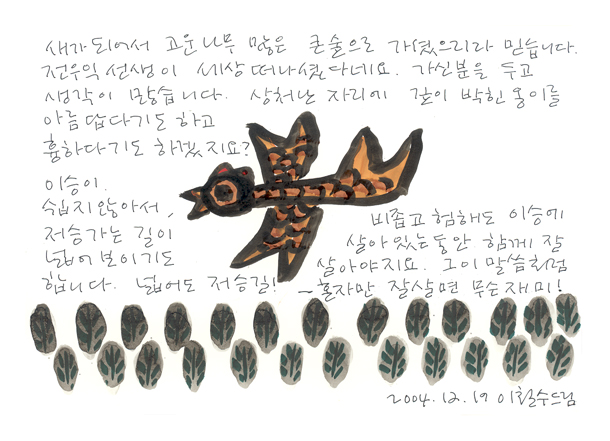 새가되어서 고운나무 많은 큰숲으로 가셨으리라 믿습니다.
전우익선생이 세상 떠나셨다네요. 가신분을 두고
생각이 많습니다. 상처난 자리에 깊이 박힌 옹이를
아름답다기도하고
흉하다기도 하겠지요?
이승이.
쉽지않아서,
저승가는 길이
넓어보이기도
합니다. 넓어도 저승길!
비좁고 험해도 이승에
살아있는동안 함께 잘
살아야지요. 그이 말씀처럼
~혼자만 잘살면 무슨재미!
2004.12.19 이철수드림